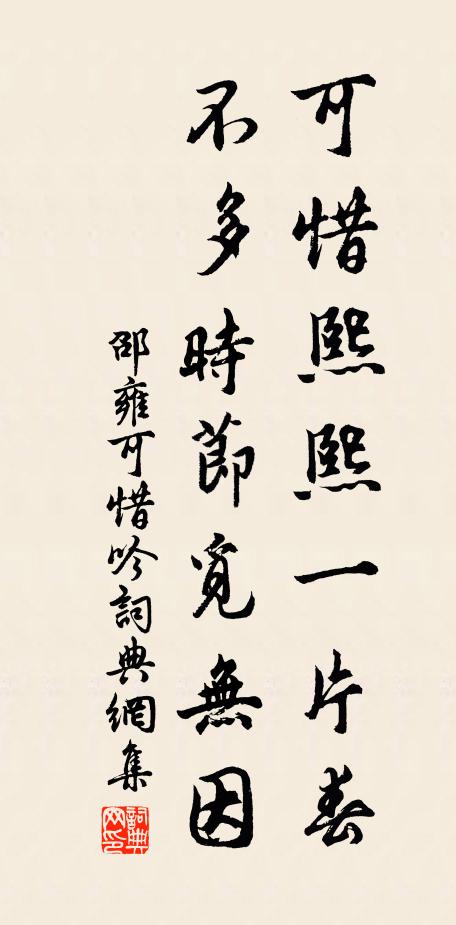 可惜熙熙一片春
不多時節覓無因
邵雍可惜吟詞典網集
詞典网印